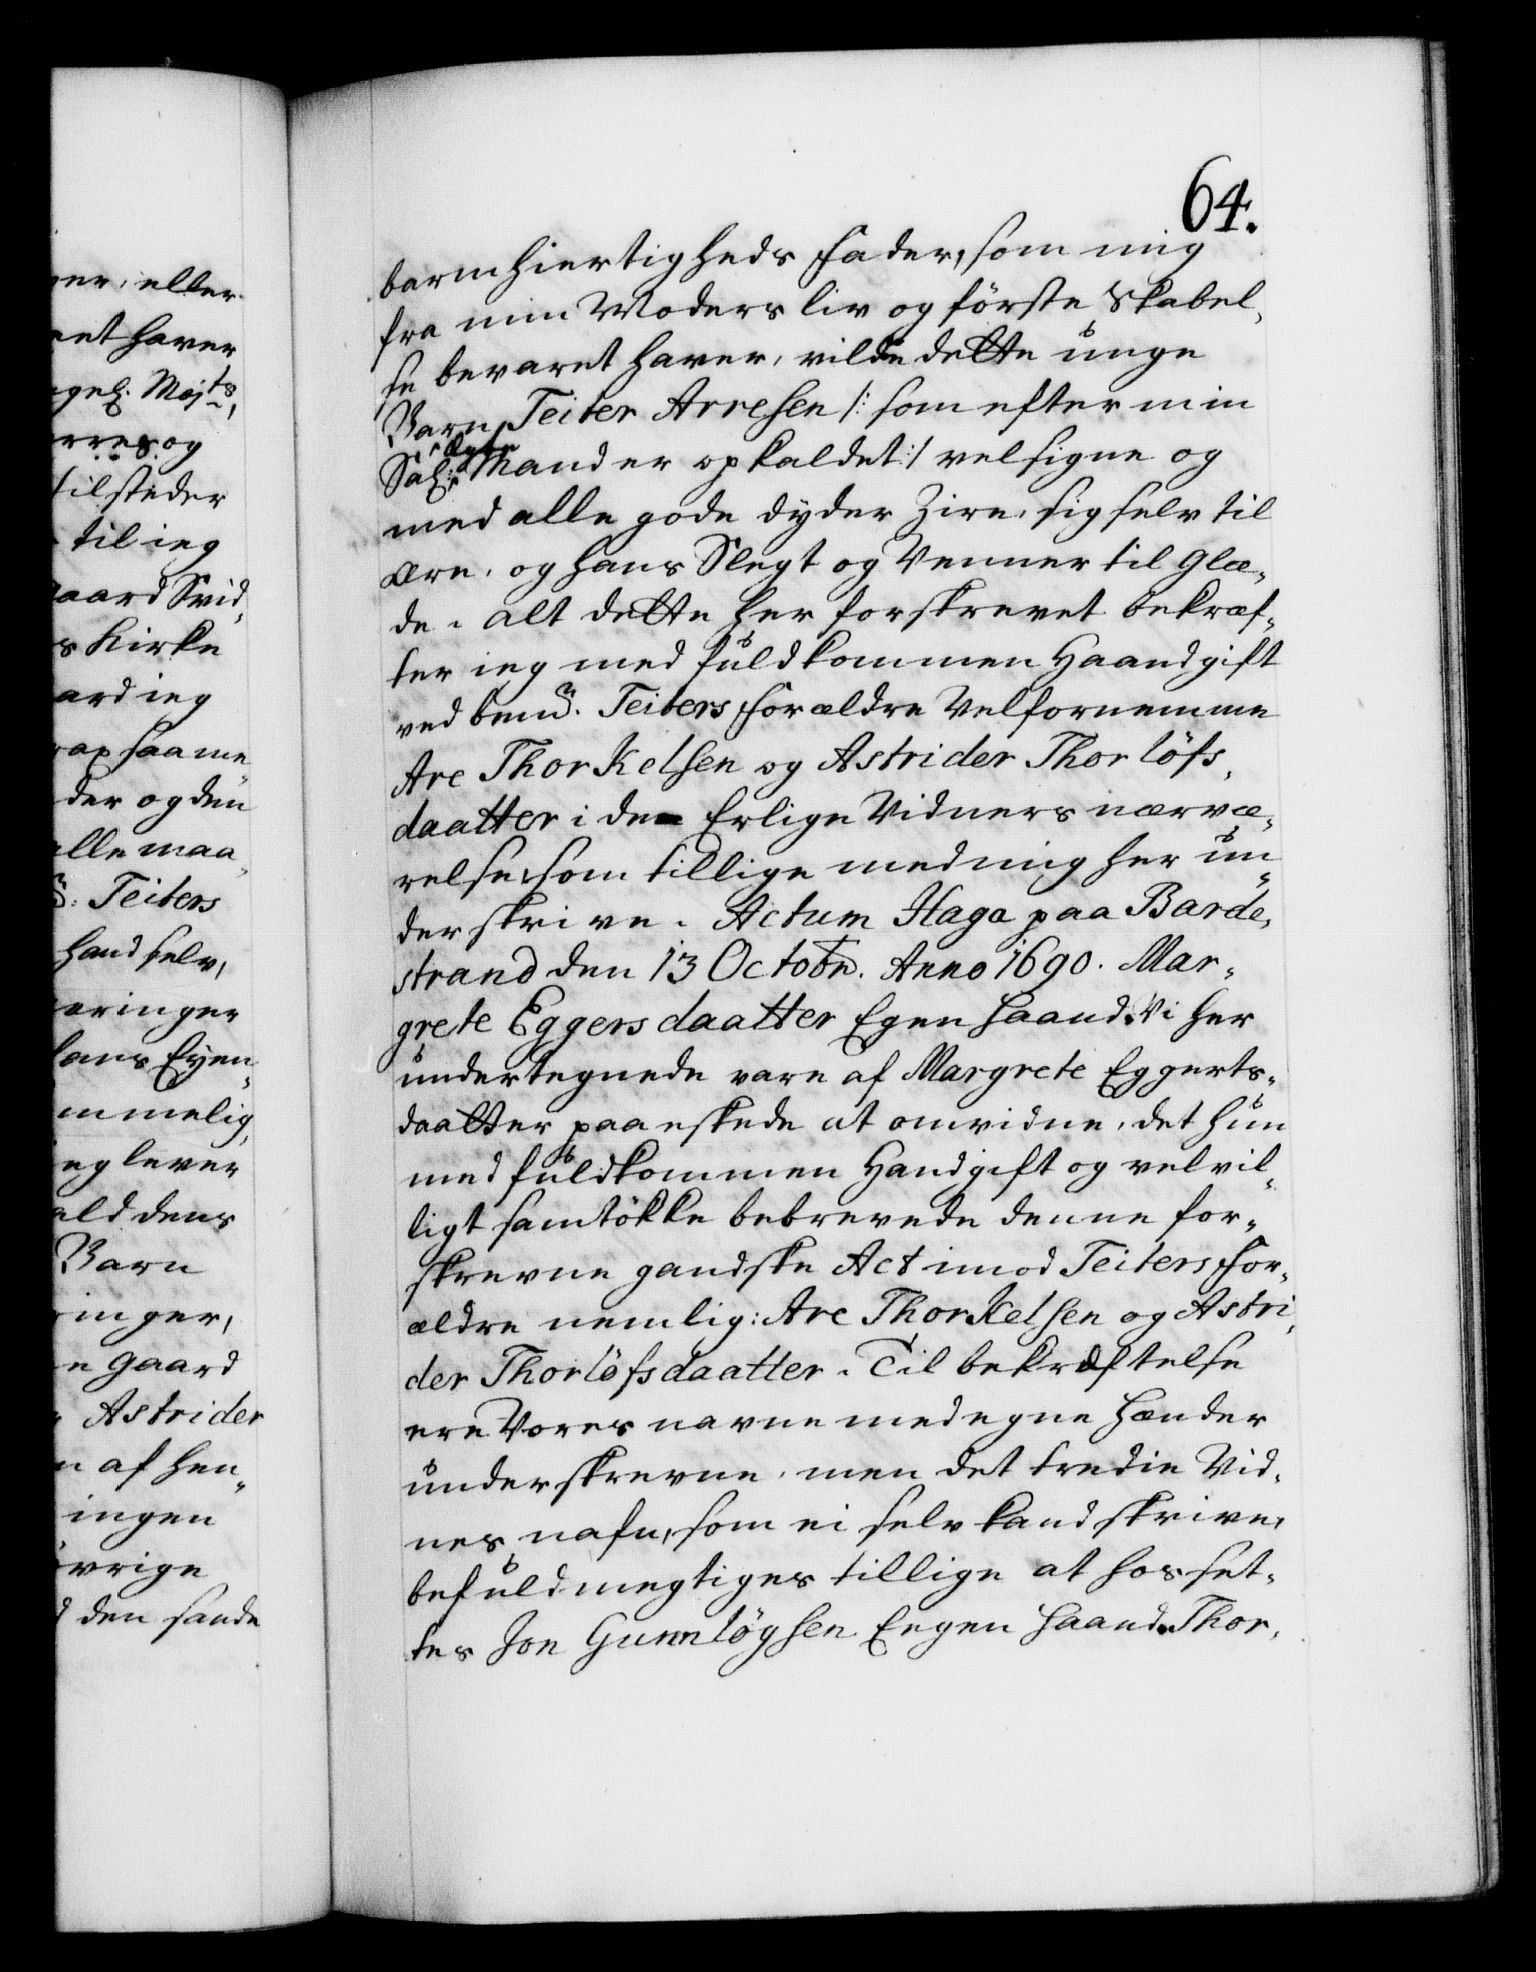 64.
barmhiertigheds Fader, som mig
fra min Moders liv og förste Skabel,
se bevaret haver, vilde dette unge
Barn Teiter Arresen /: som efter min
Sal: Mand er opkaldet :/ velsigne og
med alle gode dyder Zire, sig selv til
ære, og hans Slegt og Venner til Glæ,,
de. alt dette her forskrevet bekræf,,
ter ieg med fuldkommen Haandgift
ved bemt. Teiters Forældre Velfornemme
Are Thorkelsen og Astrider Thorlöfs,
daatter i de Erlige Vidners nærvæ,,
relse, som tillige med mig her un,,
der skrive. Actum Haga paa Barde,
strand den 13 Octobr. Anno 1690. Mar,,
grete Eggersdaatter Egen Haand. Vi her
undertegnede vare af Margrete Eggerts,,
daatter paaeskede at omvidne, det hun
med fuldkommen Handgift og velvil,,
ligt samtökke bebrevede denne for,,
skrevne gandske Act imod Teiters For,,
ældre nemlig: Are Thorkelsen og Astri,
der Thorlöfsdaatter. Til bekræftelse
ere Vores navne med egne Hænder
underskrevne, men det tredie Vid,
nes nafn, som ei selv kand skrive,
befuldmegtiges tillige at hos set,,
tes Jon Gunnlögsen Eegen Haand. Thor,
er, eller
et haver
Majts,
og
tilsteder
til ieg
gaard
s Kirke
ieg
saa me
der og den
alle maa,,
Teiters
hand selv,
eringer
hans Eyen,,
mmelig,
ieg lever
ald dens
Barn
inger,
e Gaard
Astrider
n af hen,,
ingen
övrige
den sande